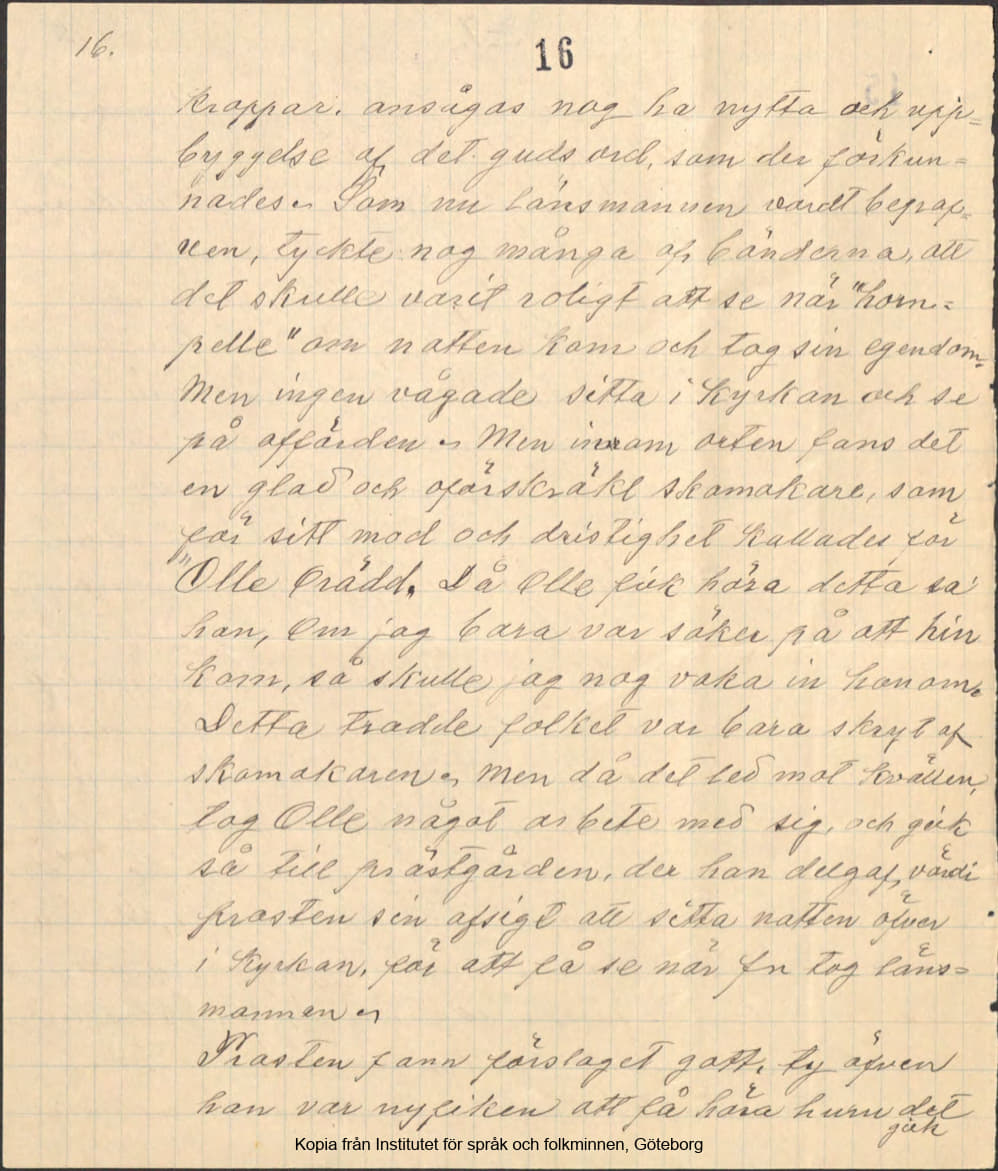 16.
16
kroppar. ansågos nog ha nytta och upp=
byggelse af det guds ord, som der förkun=
nades. Som nu länsmannen vardt begraf=
ven, tyckte nog många af bönderna, att
det skulle varit roligt att se när "horn=
pelle" om natten kom och tog sin egendom.
Men ingen vågade sitta i kyrkan och se
på affärden. Men inom orten fans det
en glad och oförskräkt skomakare, som
för sitt mod och dristighet kallades för
"Olle Orädd. Då Olle fick höra detta sa'
han, Om jag bara var säker på att hin
kom, så skulle jag nog vaka in honom.
Detta trodde folket var bara skryt af
skomakaren. Men då det led mot kvällen,
tog Olle något arbete med sig, och gick
så till prästgården, der han delgaf, värdi
prosten sin afsigt att sitta natten öfver
i kyrkan, för att få se när fn tog läns=
mannen.
Prosten fann förslaget gott, ty äfven
han var nyfiken att få höra huru det
gick
Kopia från Institutet för språk och folkminnen, Göteborg